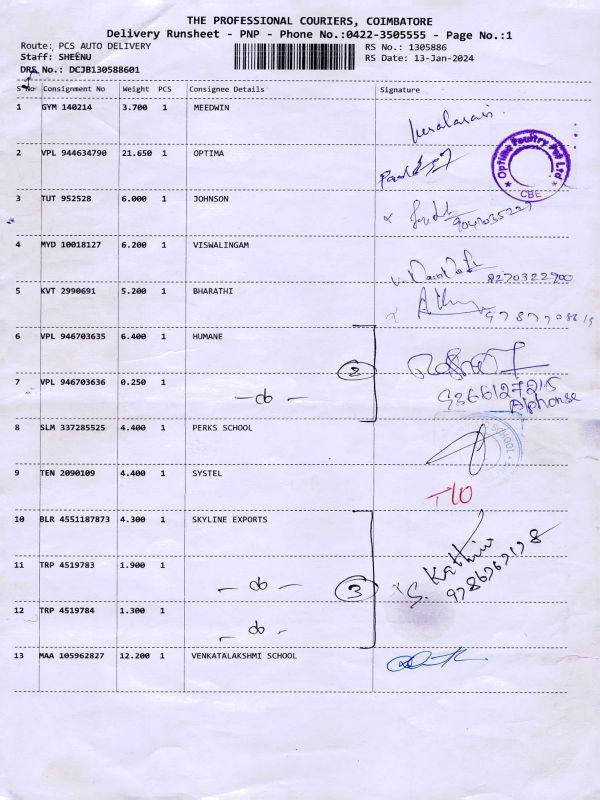 THE PROFESSIONAL COURIERS, COIMBATORE
Delivery Runsheet - PNP - Phone No.:0422-3505555 - Page No.:1
Route: PCS AUTO DELIVERY RS No.: 1305886
Staff: SHEENU RS Date: 13-Jan-2024
DRS No.: DCJB130588601
S No Consignment No Weight PCS Consignee Details Signature
1 GYM 140214 3.700 1 MEEDWIN
2 VPL 944634790 21.650 1 OPTIMA
Optima Poultry Pvt Ltd
CBE
3 TUT 952528 6.000 1 JOHNSON
4 MYD 10018127 6.200 1 VISWALINGAM
8270322900
5 KVT 2990691 5.200 1 BHARATHI
6 VPL 946703635 6.400 1 HUMANE
2
7 VPL 946703636 0.250 1 - do -
9366127215
Alphonse
8 SLM 337285525 4.400 1 PERKS SCHOOL
SCHOOL
9 TEN 2090109 4.400 1 SYSTEL
T/O
10 BLR 4551187873 4.300 1 SKYLINE EXPORTS
11 TRP 4519783 1.900 1 - do -
3
S. Kathir
12 TRP 4519784 1.300 1 - do -
13 MAA 105962827 12.200 1 VENKATALAKSHMI SCHOOL